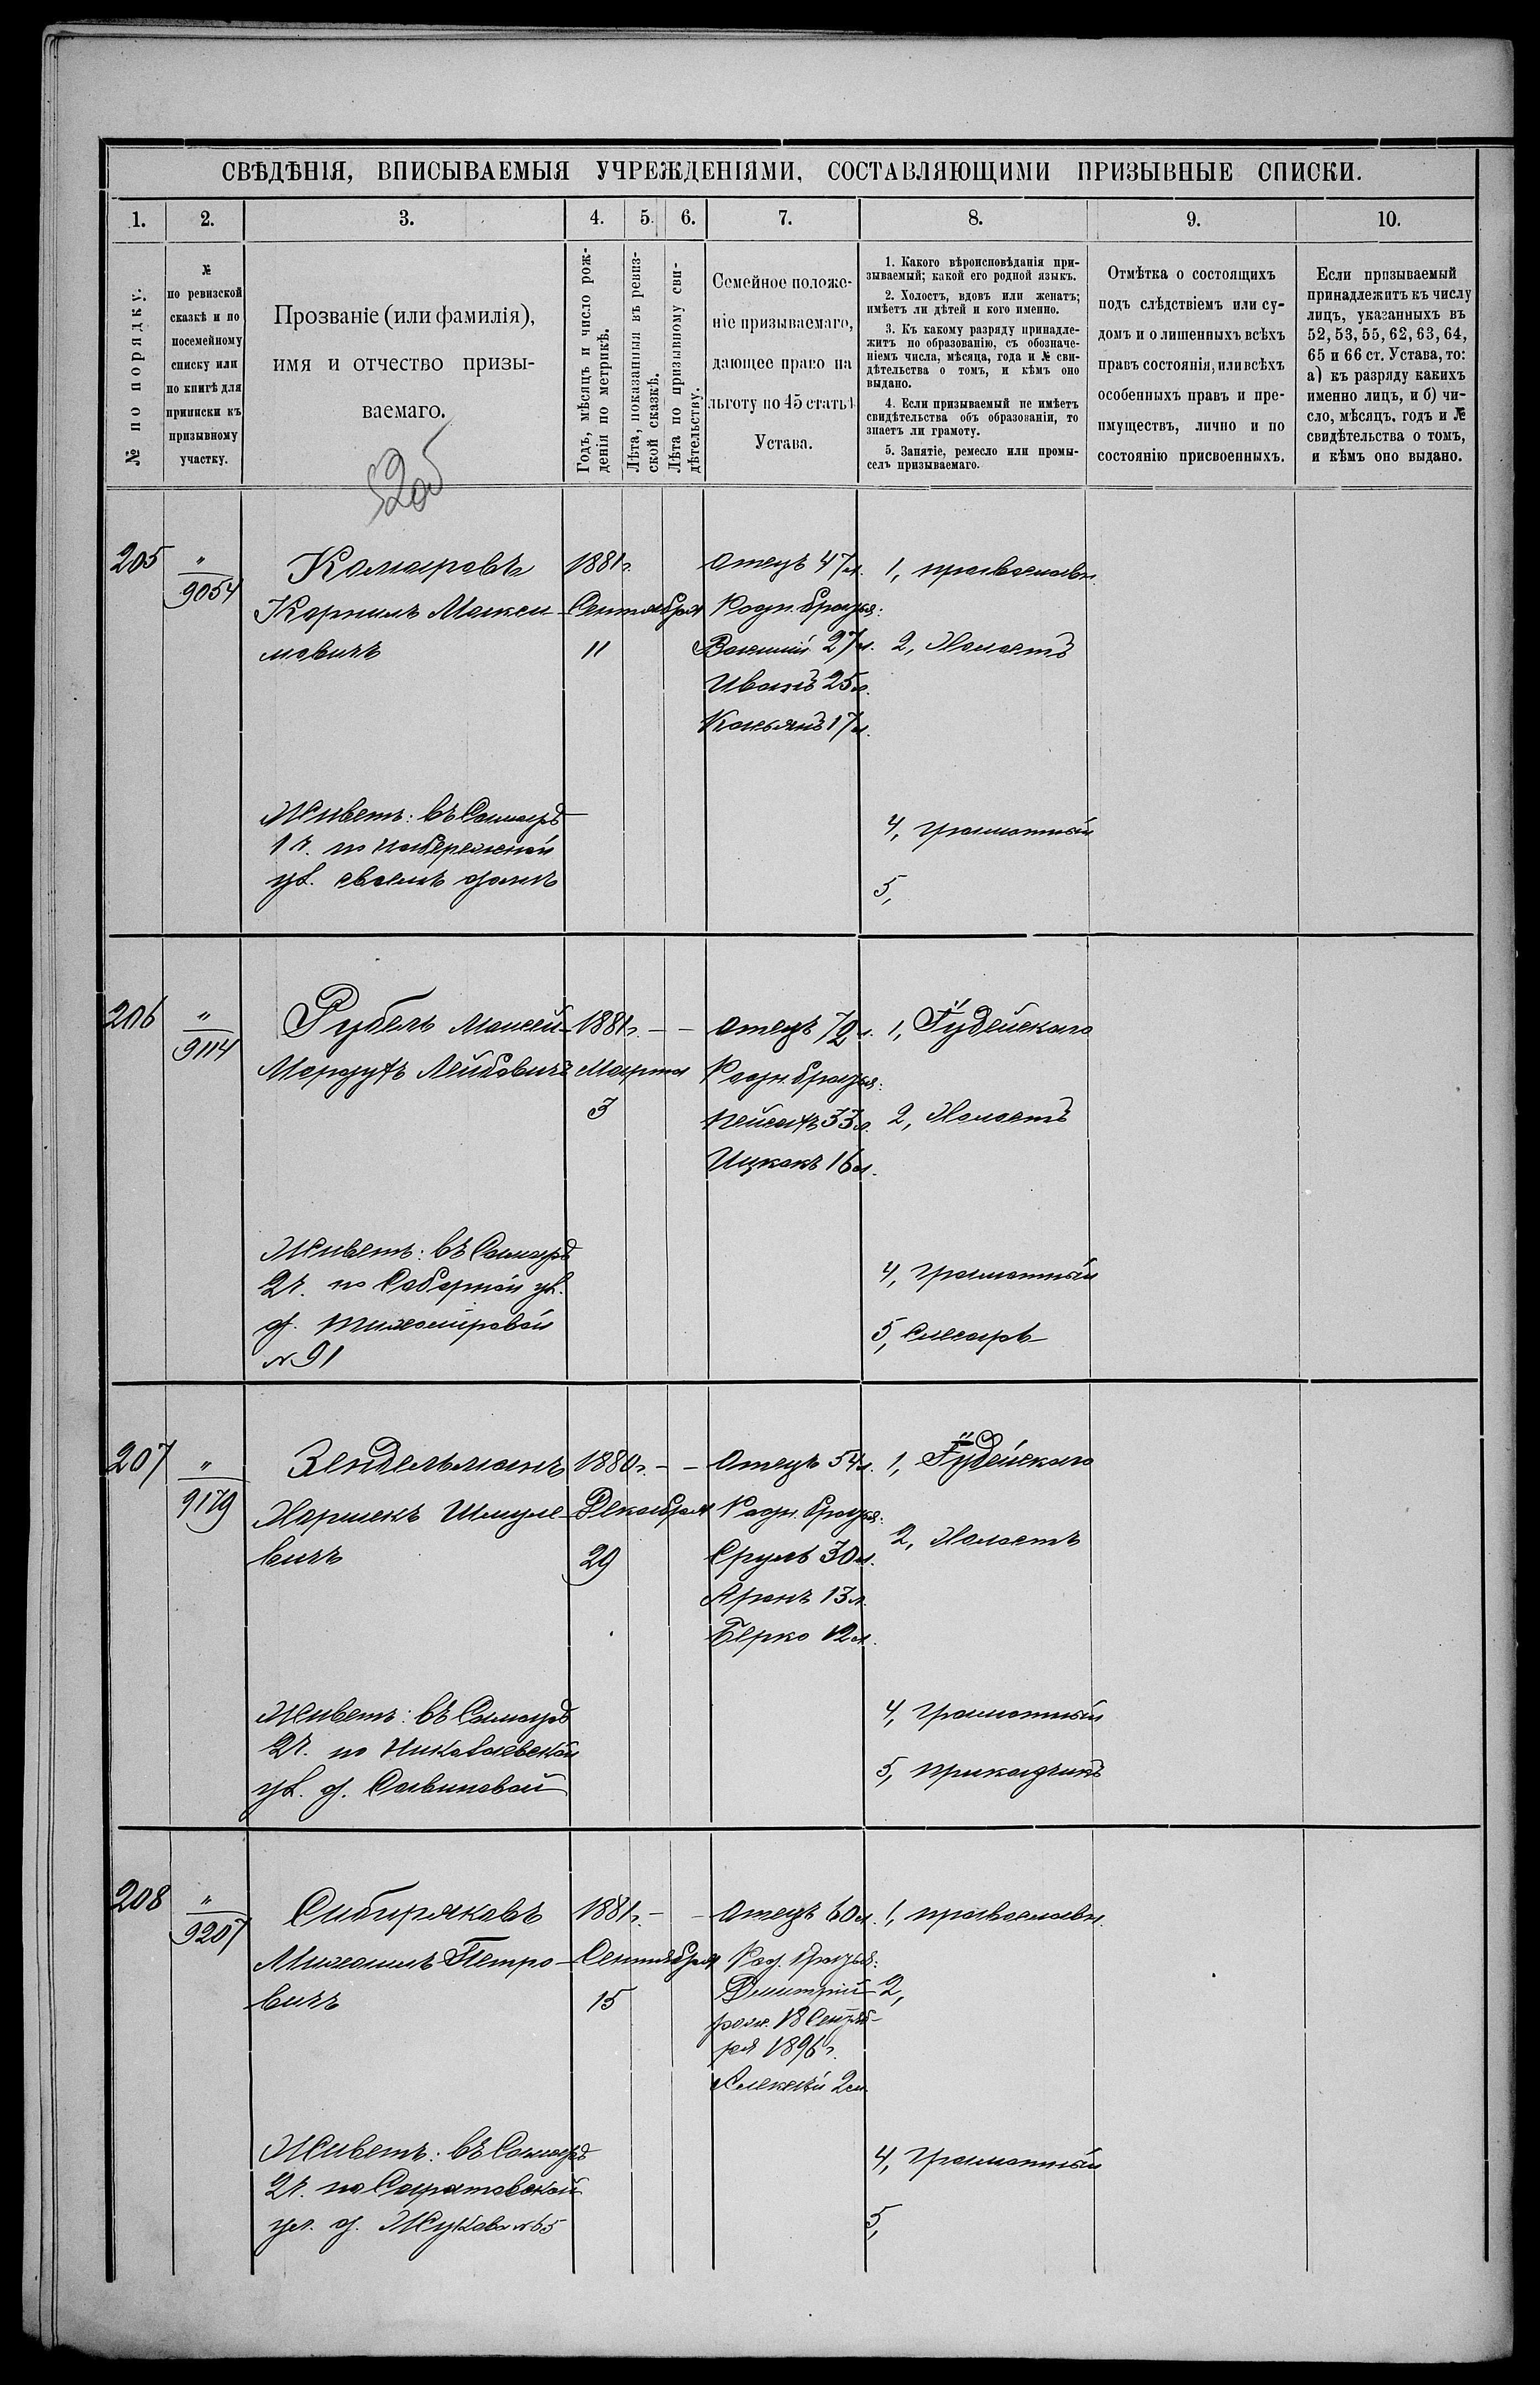 СВѢДѢНІЯ, ВПИСЫВАЕМЫЯ УЧРЕЖДЕНІЯМИ, СОСТАВЛЯЮЩИМИ ПРИЗЫВНЫЕ СПИСКИ.
1. 2. 3. 4. 5. 6. 7. 8. 9. 10.
№ по порядку.
№
по ревизской
сказкѣ и по
посемейному
списку или
по книгѣ для
приписки къ
призывному
участку.
Прозваніе (или фамилія),
имя и отчество призы-
ваемаго.
Годъ, мѣсяцъ и число рож-
денія по метрикѣ.
Лѣта, показанныя въ ревиз-
ской сказкѣ.
Лѣта по призывному сви-
дѣтельству.
Семейное положе-
ніе призываемаго,
дающее право на
льготу по 45 статьѣ
Устава.
1. Какого вѣроисповѣданія при-
зываемый; какой его родной языкъ.
2. Холостъ, вдовъ или женатъ;
имѣетъ ли дѣтей и кого именно.
3. Къ какому разряду принадле-
житъ по образованію, съ обозначе-
ніемъ числа, мѣсяца, года и № сви-
дѣтельства о томъ, и кѣмъ оно
выдано.
4. Если призываемый не имѣетъ
свидѣтельства объ образованіи, то
знаетъ ли грамоту.
5. Занятіе, ремесло или промы-
селъ призываемаго.
Отмѣтка о состоящихъ
подъ слѣдствіемъ или су-
домъ и о лишенныхъ всѣхъ
правъ состоянія, или всѣхъ
особенныхъ правъ и пре-
имуществъ, лично и по
состоянію присвоенныхъ.
Если призываемый
принадлежитъ къ числу
лицъ, указанныхъ въ
52, 53, 55, 62, 63, 64,
65 и 66 ст. Устава, то:
а) къ разряду какихъ
именно лицъ, и б) чи-
сло, мѣсяцъ, годъ и №
свидѣтельства о томъ,
и кѣмъ оно выдано.
205
"
9054
Комаровъ
Корнилъ Макси-
мовичъ
1881г.
Сентября
11
Отецъ 47л.
Родн. братья:
Василій 27л.
Иванъ 25л.
Касьянъ 17л.
1, православн.
2, Холостъ
Живетъ: въ Самарѣ
1 ч. по набережной
ул. своемъ домѣ
4, грамотный
5,
206
"
9114
Рубель Моисей-
Мордухъ Лейбовичъ
1881г. - -
Марта
3
Отецъ 72л.
Родн. братья:
Пейсахъ 33л.
Ицкокъ 16л.
1, Іудейскаго
2, Холостъ
Живетъ: въ Самарѣ
2ч. по Соборной ул.
д. Тихомировой
№ 91
4, грамотный
5, слесарь
207
"
9179
Зендельманъ
Харимъ Шмуле-
вичъ
1880г. - -
Декабря
29
Отецъ 54л.
Родн. братья:
Сруль 30л.
Аронъ 13л.
Берко 12л.
1, Іудейскаго
2, Холостъ
Живетъ: въ Самарѣ
2ч. по Николаевской
ул. д. Савиновой
4, грамотный
5, прикащикъ
208
"
9207
Сибиряковъ
Михаилъ Петро-
вичъ
1881г. - -
Сентября
15
Отецъ 60л.
Род. братья:
Дмитрій
рожд. 18 Сентяб-
ря 1896г.
Алексѣй 2л.
1, православн.
2,
Живетъ: въ Самарѣ
2ч. по Саратовской
ул. д. Жукова № 65
4, грамотный
5,